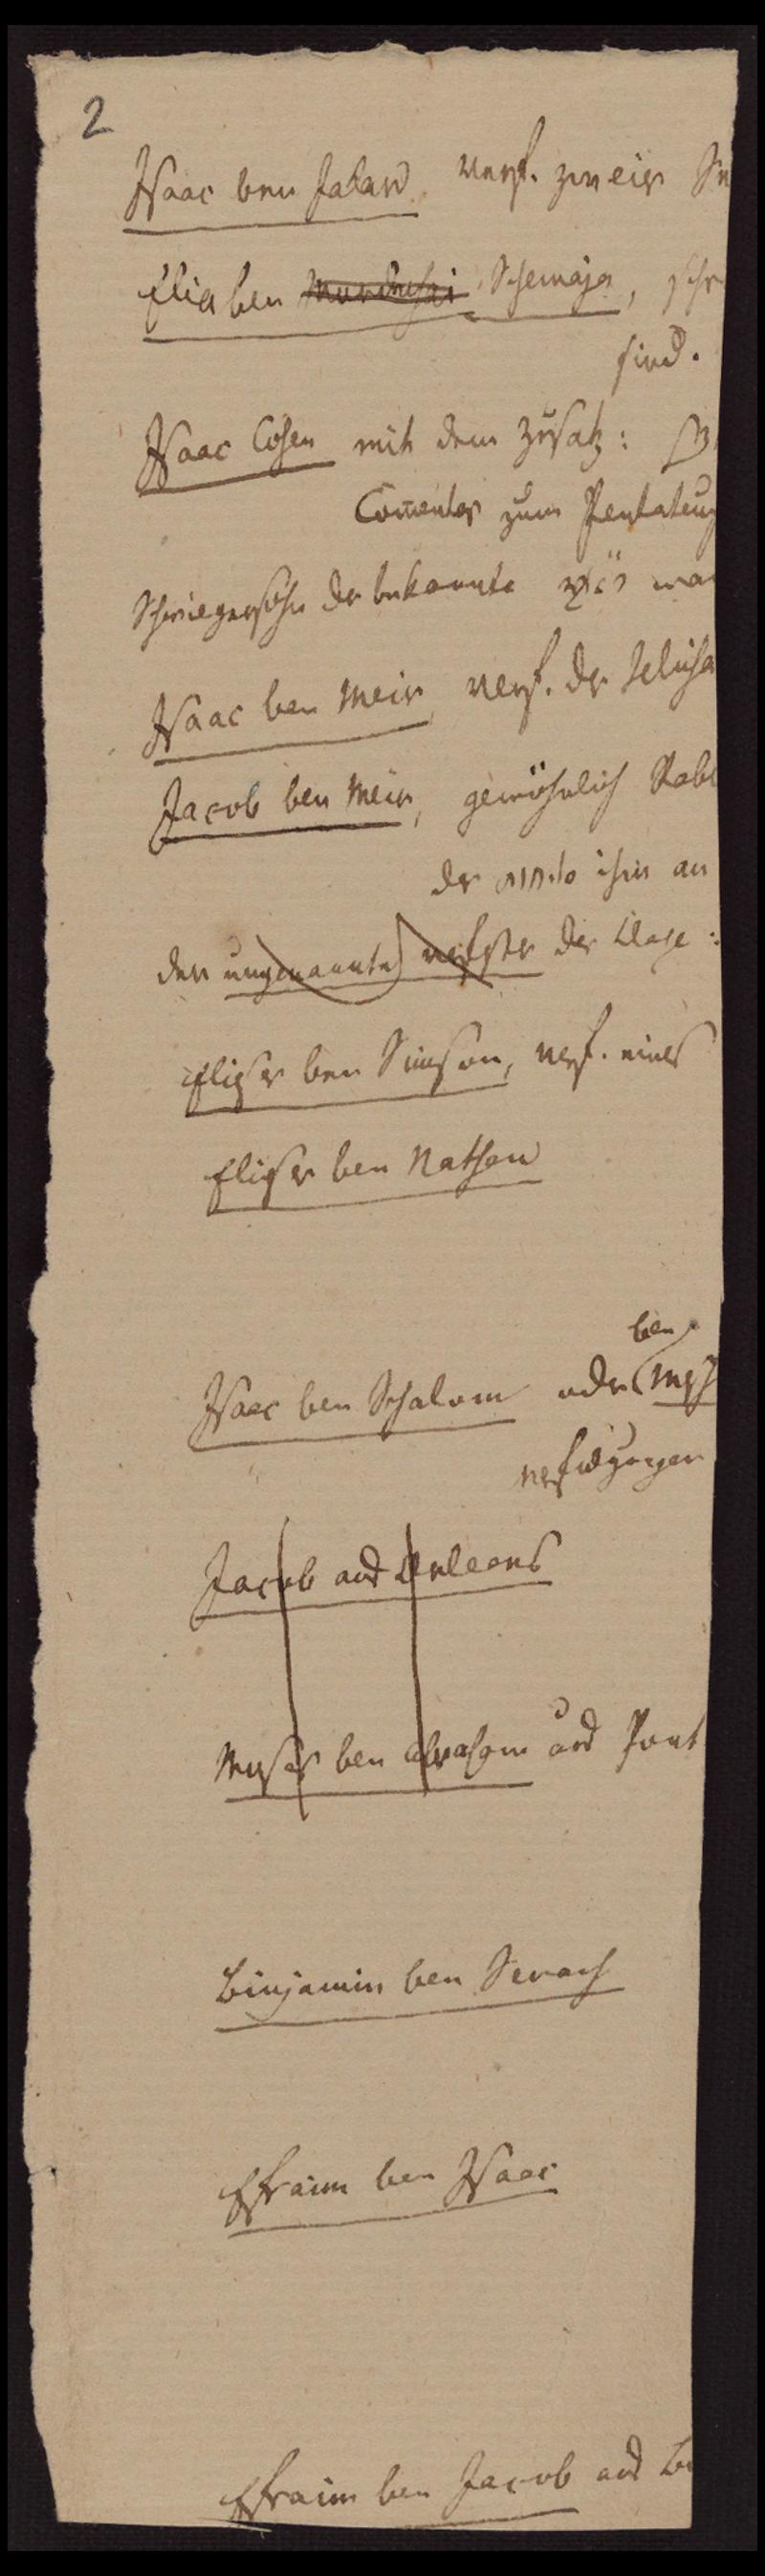 2
Isaac ben Jakar verf. zweier Se
Elia ben Mordechai Schemaja, schr
sind.
Isaac Cohen mit dem Zusatz:
Comentar zum Pentateuch
Schwiegersohn der bekannte war
Isaac ben Meir, verf. der Selicha
Jacob ben Meir, gewöhnlich Rabe
der ihm an
den ungenannten verfasser der Klage:
Elieser ben Simson, verf. eines
Elieser ben Nathan
ben
Isaac ben Schalom oder Mos
Verfolgungen
Jacob aus Orleans
Moses ben Abraham aus Pont
Binjamin ben Serach
Efraim ben Isaac
Efraim ben Jacob aus Bo